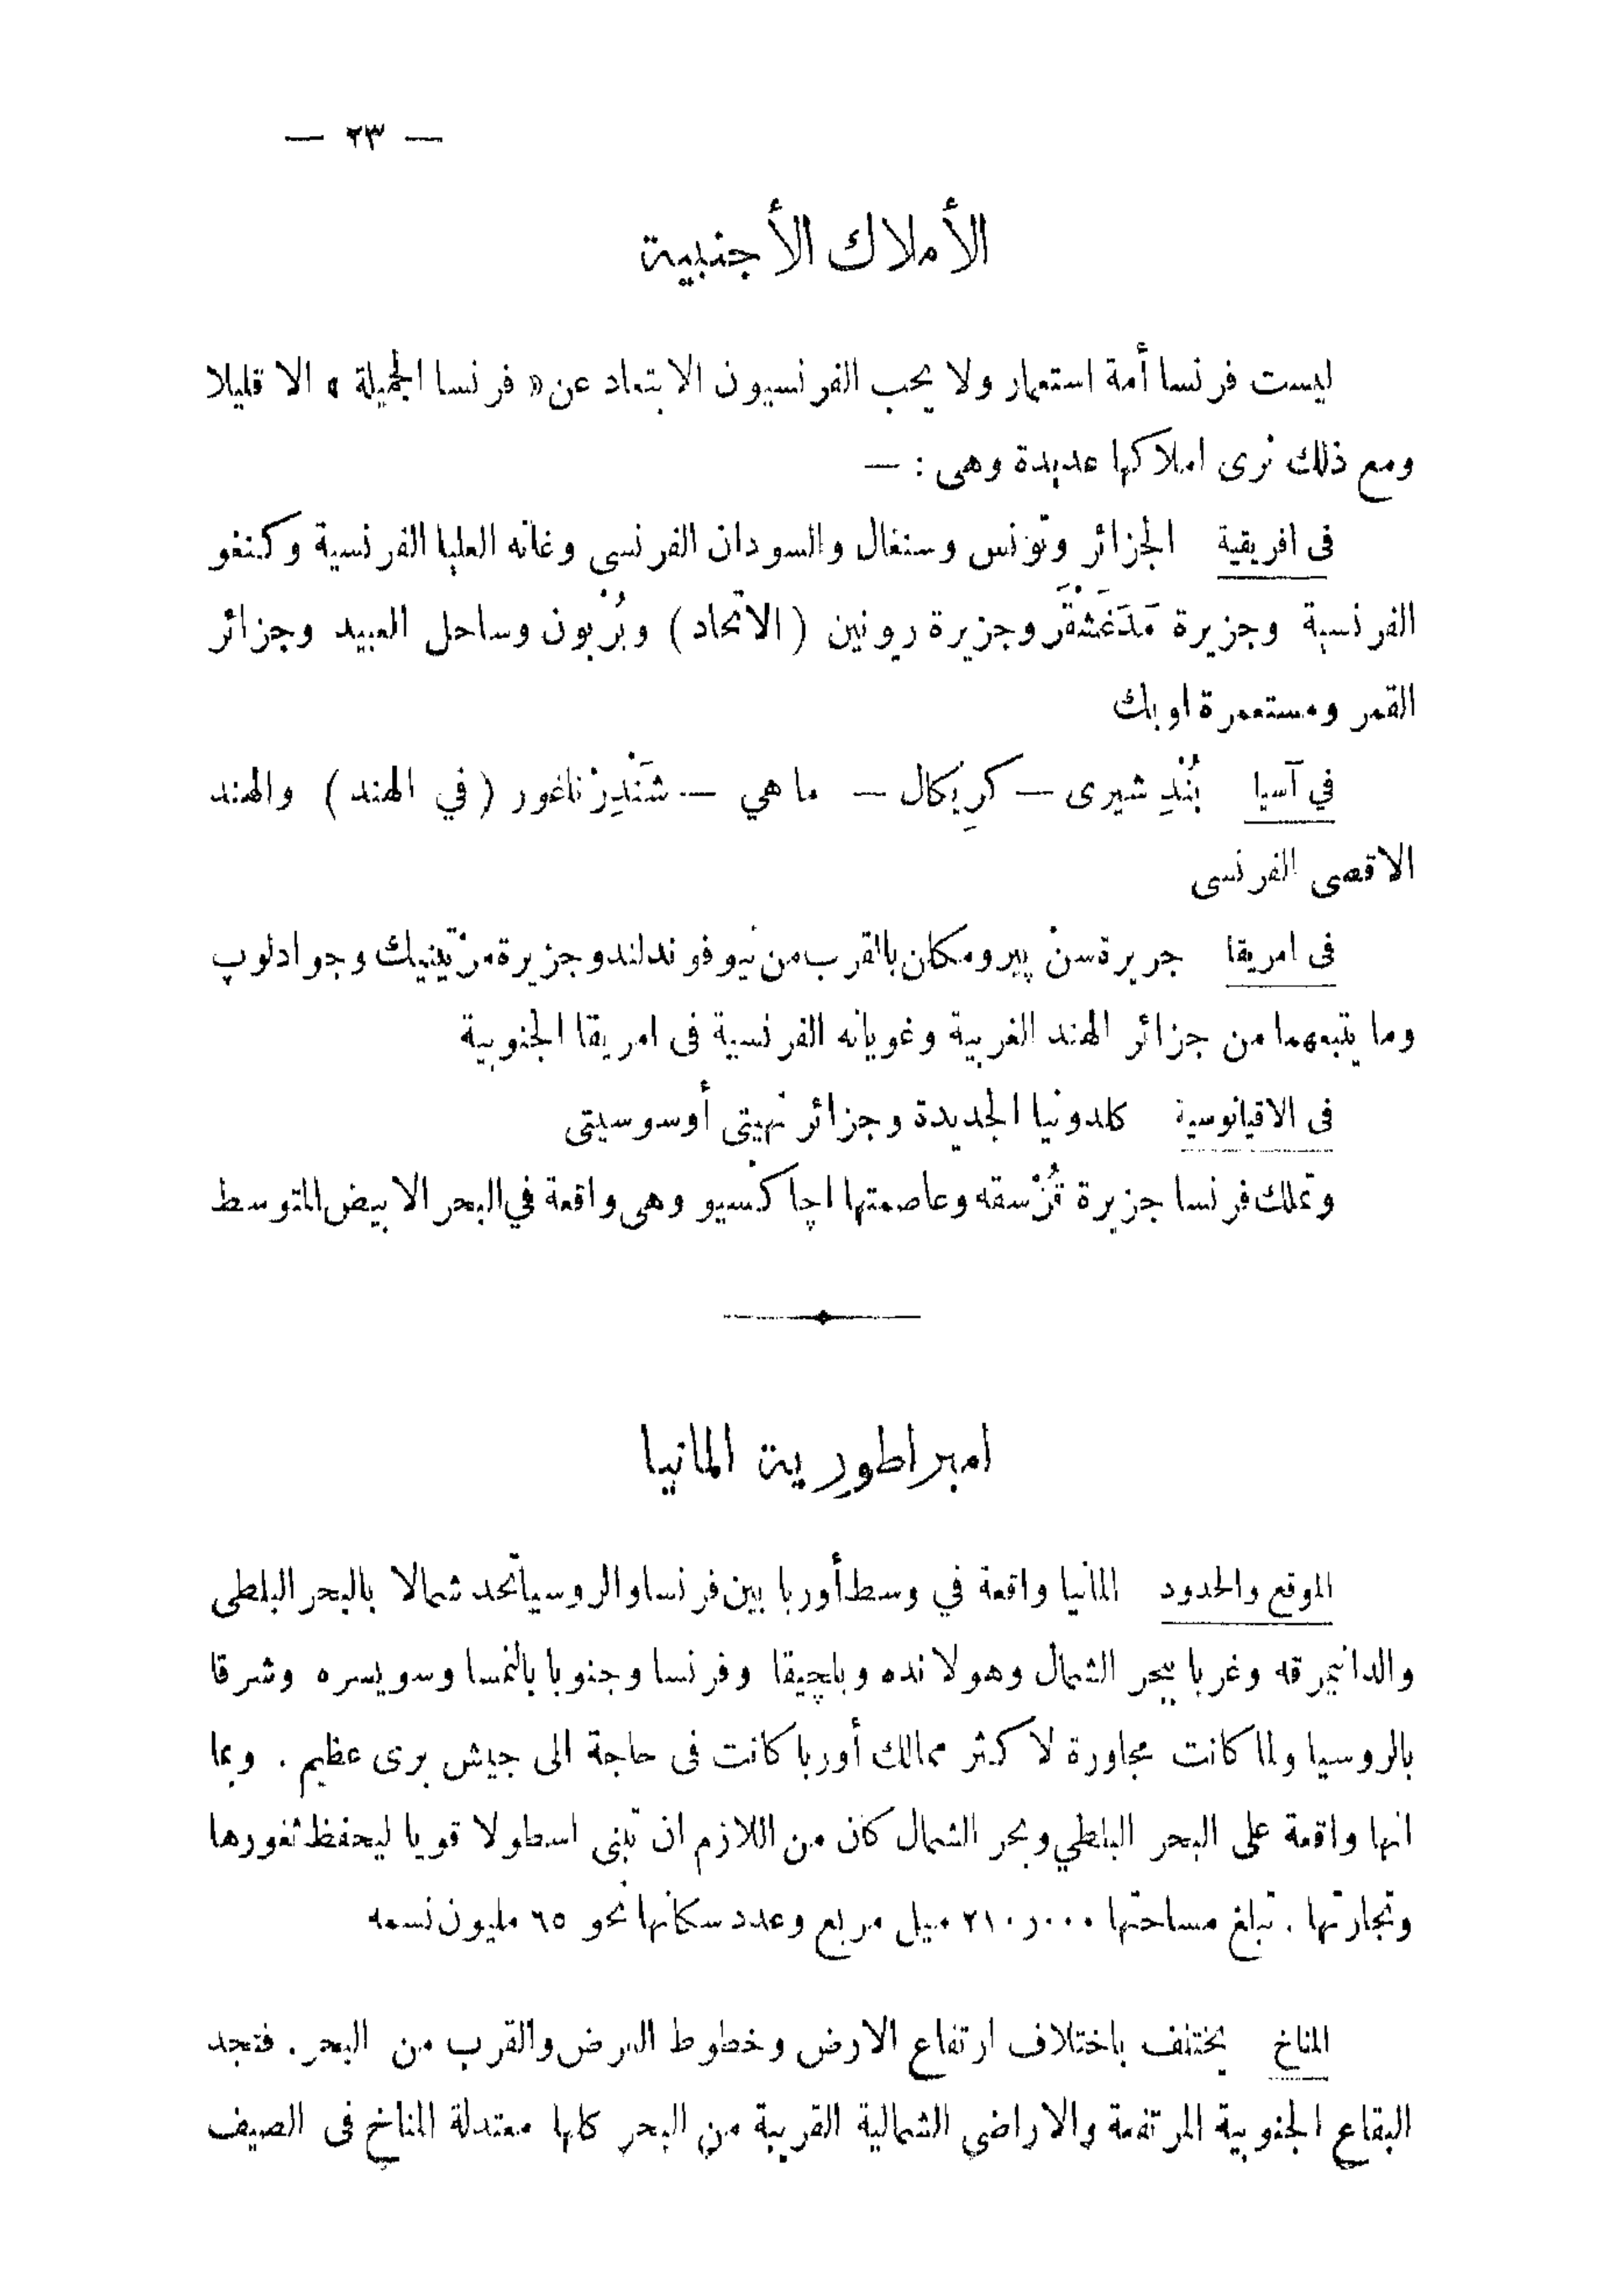 — ٢٣ —
الأملاك الأجنبية
ليست فرنسا أمة استعمار ولا يحب الفرنسيون الابتعاد عن « فرنسا الجميلة » الا قليلا
ومع ذلك نرى املاكها عديدة وهى : —
فى افريقية الجزائر وتونس وسنغال والسودان الفرنسى وغانه العليا الفرنسية وكنغو
الفرنسية وجزيرة مَدَغَشْقَر وجزيرة رونين ( الاتحاد ) وبُرْبون وساحل العبيد وجزائر
القمر ومستعمرة اوبك
في آسيا بُنْدِ شيرى — كرِيكال — ماهي — شَنْدِرْناغور ( في الهند ) والهند
الاقصى الفرنسى
فى امريقا جريرة سنْ پيرومكان بالقرب من نيوفوندلند وجزيرة مرْتينيك وجوادلوپ
وما يتبعهما من جزائر الهند الغربية وغويانه الفرنسية فى امريقا الجنوبية
فى الاقيانوسية كلدونيا الجديدة وجزائر تهيتى أوسوسيتى
وتملك فرنسا جزيرة قُرْسقه وعاصمتها اچاكسيو وهى واقعة في البحر الابيض المتوسط
امبراطورية المانيا
الموقع والحدود المانيا واقعة في وسط أوربا بين فرنسا والروسيا تحد شمالا بالبحر البلطى
والدانيمرقه وغربا ببحر الشمال وهولانده وبلچيقا وفرنسا وجنوبا بالنمسا وسويسره وشرقا
بالروسيا ولما كانت مجاورة لاكثر ممالك أوربا كانت فى حاجة الى جيش برى عظيم . وبما
انها واقعة على البحر البلطي وبحر الشمال كان من اللازم ان تبنى اسطولا قويا ليحفظ ثغورها
وتجارتها . تبلغ مساحتها ٢١٠ر٠٠٠ ميل مربع وعدد سكانها نحو ٦٥ مليون نسمه
المناخ يختلف باختلاف ارتفاع الارض وخطوط العرض والقرب من البحر . فتجد
البقاع الجنوبية المرتفعة والاراضى الشمالية القريبة من البحر كلها معتدلة المناخ فى الصيف